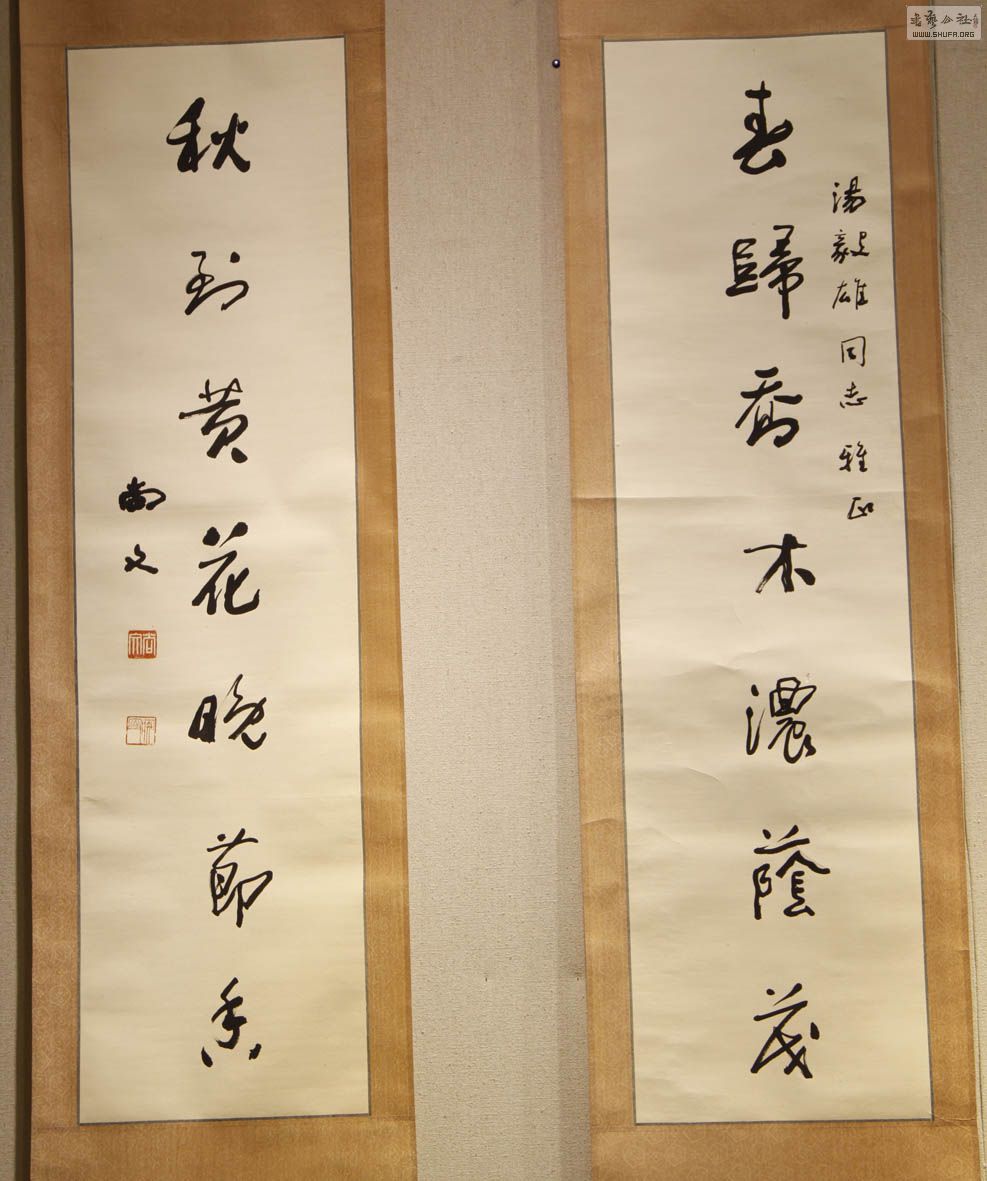 春歸喬木濃蔭茂
湯毅雄同志雅正
秋到黄花晚節香
尚文
書藝公社
WWW.SHUFA.ORG